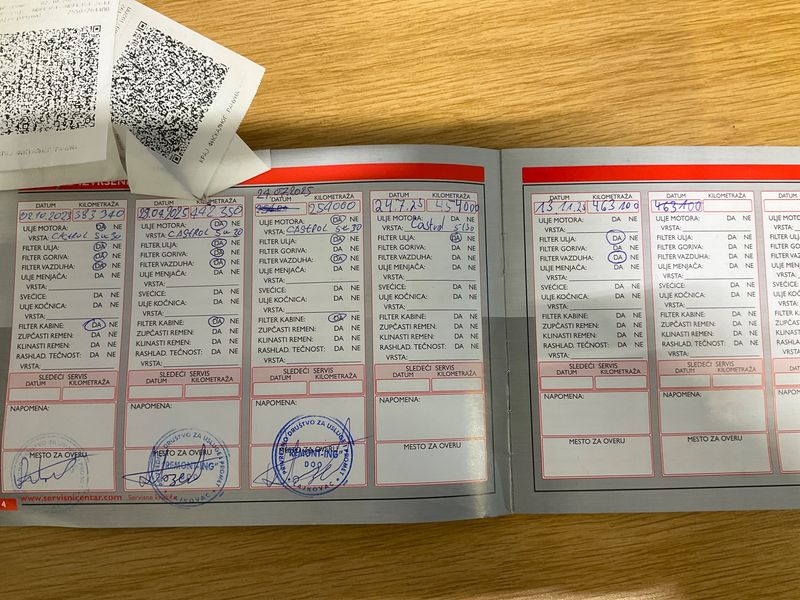 DATUM KILOMETRAŽA
02.10.2023 383 340
ULJE MOTORA: DA NE
VRSTA: CASTROL 5w30
FILTER ULJA: DA NE
FILTER GORIVA: DA NE
FILTER VAZDUHA: DA NE
ULJE MENJAČA: DA NE
VRSTA:
SVEĆICE: DA NE
ULJE KOČNICA: DA NE
VRSTA:
FILTER KABINE: DA NE
ZUPČASTI REMEN: DA NE
KLINASTI REMEN: DA NE
RASHLAD. TEČNOST: DA NE
VRSTA:
SLEDEĆI SERVIS
DATUM KILOMETRAŽA
NAPOMENA:
MESTO ZA OVERU
DATUM KILOMETRAŽA
442 350
ULJE MOTORA: DA NE
VRSTA: CASTROL 5w30
FILTER ULJA: DA NE
FILTER GORIVA: DA NE
FILTER VAZDUHA: DA NE
ULJE MENJAČA: DA NE
VRSTA:
SVEĆICE: DA NE
ULJE KOČNICA: DA NE
VRSTA:
FILTER KABINE: DA NE
ZUPČASTI REMEN: DA NE
KLINASTI REMEN: DA NE
RASHLAD. TEČNOST: DA NE
VRSTA:
SLEDEĆI SERVIS
DATUM KILOMETRAŽA
NAPOMENA:
MESTO ZA OVERU
"REMONT-ING"
LAJKOVAC
24.07.2025
DATUM KILOMETRAŽA
251000
ULJE MOTORA: DA NE
VRSTA: CASTROL 5w30
FILTER ULJA: DA NE
FILTER GORIVA: DA NE
FILTER VAZDUHA: DA NE
ULJE MENJAČA: DA NE
VRSTA:
SVEĆICE: DA NE
ULJE KOČNICA: DA NE
VRSTA:
FILTER KABINE: DA NE
ZUPČASTI REMEN: DA NE
KLINASTI REMEN: DA NE
RASHLAD. TEČNOST: DA NE
VRSTA:
SLEDEĆI SERVIS
DATUM KILOMETRAŽA
NAPOMENA:
MESTO ZA OVERU
PRIVREDNO DRUŠTVO ZA USLUGE I PROMET
"REMONT-ING"
DOO
LAJKOVAC
DATUM KILOMETRAŽA
24.7.25 454000
ULJE MOTORA: DA NE
VRSTA: Castrol 5w30
FILTER ULJA: DA NE
FILTER GORIVA: DA NE
FILTER VAZDUHA: DA NE
ULJE MENJAČA: DA NE
VRSTA:
SVEĆICE: DA NE
ULJE KOČNICA: DA NE
VRSTA:
FILTER KABINE: DA NE
ZUPČASTI REMEN: DA NE
KLINASTI REMEN: DA NE
RASHLAD. TEČNOST: DA NE
VRSTA:
SLEDEĆI SERVIS
DATUM KILOMETRAŽA
NAPOMENA:
MESTO ZA OVERU
www.servisnicentar.com
4
DATUM KILOMETRAŽA
13.11.25 463100
ULJE MOTORA: DA NE
VRSTA:
FILTER ULJA: DA NE
FILTER GORIVA: DA NE
FILTER VAZDUHA: DA NE
ULJE MENJAČA: DA NE
VRSTA:
SVEĆICE: DA NE
ULJE KOČNICA: DA NE
VRSTA:
FILTER KABINE: DA NE
ZUPČASTI REMEN: DA NE
KLINASTI REMEN: DA NE
RASHLAD. TEČNOST: DA NE
VRSTA:
SLEDEĆI SERVIS
DATUM KILOMETRAŽA
NAPOMENA:
MESTO ZA OVERU
DATUM KILOMETRAŽA
463100
ULJE MOTORA: DA NE
VRSTA:
FILTER ULJA: DA NE
FILTER GORIVA: DA NE
FILTER VAZDUHA: DA NE
ULJE MENJAČA: DA NE
VRSTA:
SVEĆICE: DA NE
ULJE KOČNICA: DA NE
VRSTA:
FILTER KABINE: DA NE
ZUPČASTI REMEN: DA NE
KLINASTI REMEN: DA NE
RASHLAD. TEČNOST: DA NE
VRSTA:
SLEDEĆI SERVIS
DATUM KILOMETRAŽA
NAPOMENA:
MESTO ZA OVERU